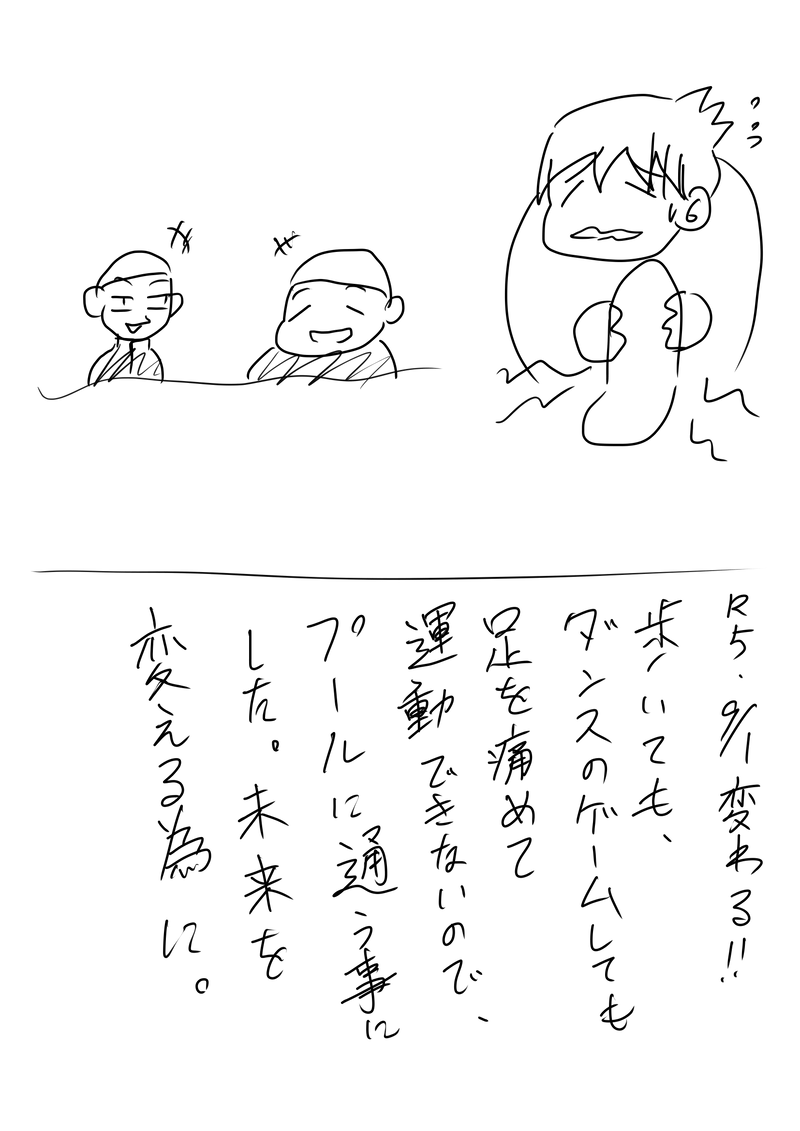 R5.9/1変わる!!
歩いても、
ダンスのゲームしても
足を痛めて
運動できないので、
プールに通う事に
した。未来を
変える為に。